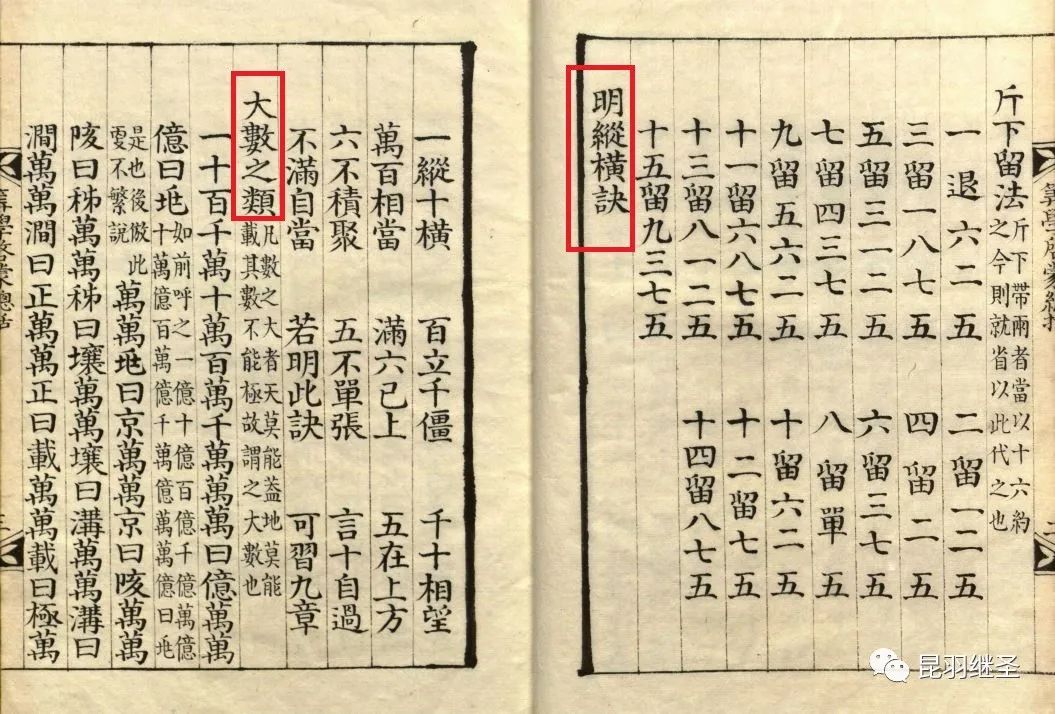 斤下留法 斤下帶兩者當以十六約
之今則就省以此代之也
一退六二五 二留一二五
三留一八七五 四留二五
五留三一二五 六留三七五
七留四三七五 八留單五
九留五六二五 十留六二五
十一留六八七五 十二留七五
十三留八一二五 十四留八七五
十五留九三七五
明縱橫訣
一縱十橫 百立千僵 千十相望
萬百相當 滿六已上 五在上方
六不積聚 五不單張 言十自過
不滿自當 若明此訣 可習九章
大數之類 凡數之大者天莫能蓋地莫能
載其數不能極故謂之大數也
一十百千萬十萬百萬千萬萬萬曰億萬萬
億曰兆 如前呼之一億十億百億千億萬億
十萬億百萬億千萬億萬萬億曰兆
是也後倣此
更不繁說 萬萬兆曰京萬萬京曰陔萬萬
陔曰秭萬萬秭曰壤萬萬壤曰溝萬萬溝曰
澗萬萬澗曰正萬萬正曰載萬萬載曰極萬
昆羽继圣